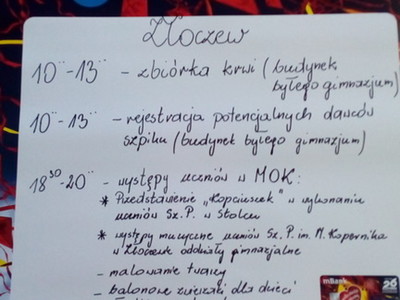 Złoczew
10⁰⁰-13⁰⁰ - zbiórka krwi (budynek
byłego gimnazjum)
10⁰⁰-13⁰⁰ - rejestracja potencjalnych dawców
szpiku (budynek byłego gimnazjum)
18³⁰-20⁰⁰ - występy uczniów w MOK:
* Przedstawienie "Kopciuszek" w wykonaniu
uczniów Sz. P. w Stolcu
* występy muzyczne uczniów Sz. P. im. M. Kopernika
w Złoczewie oddziały gimnazjalne
- malowanie twarzy
- balonowe zwierzaki dla dzieci
mBank
26